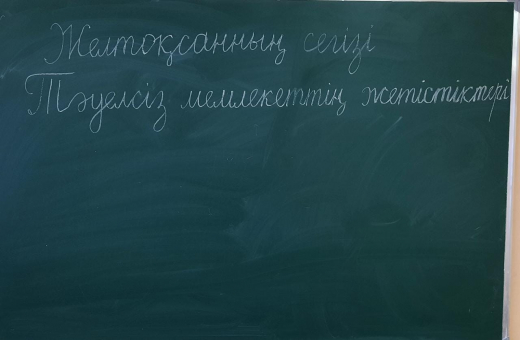 Желтоқсанның сегізі
Тәуелсіз мемлекеттің жетістіктері